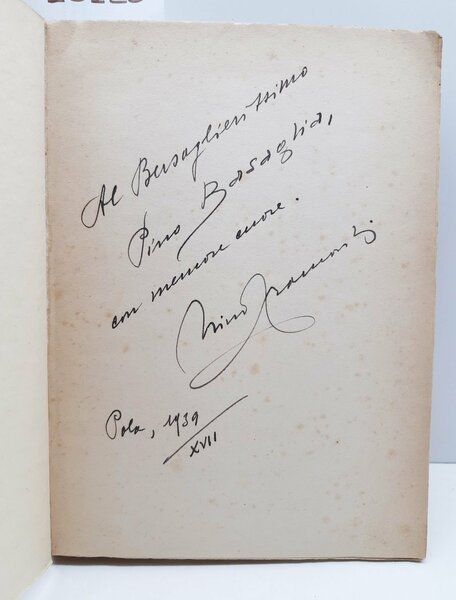 Al Bersaglierissimo
Pino Basaglia,
con memore cuore.
Nino
Pola, 1939
XVII